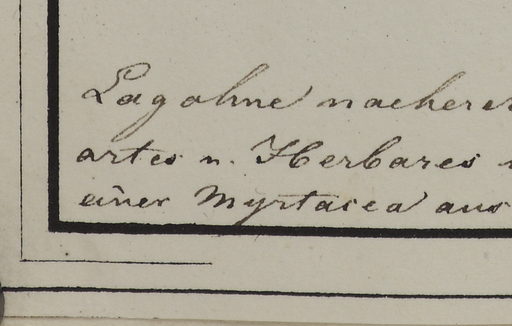 Lag ohne nacherer
artes u. Herbares
einer Myrtacea aus